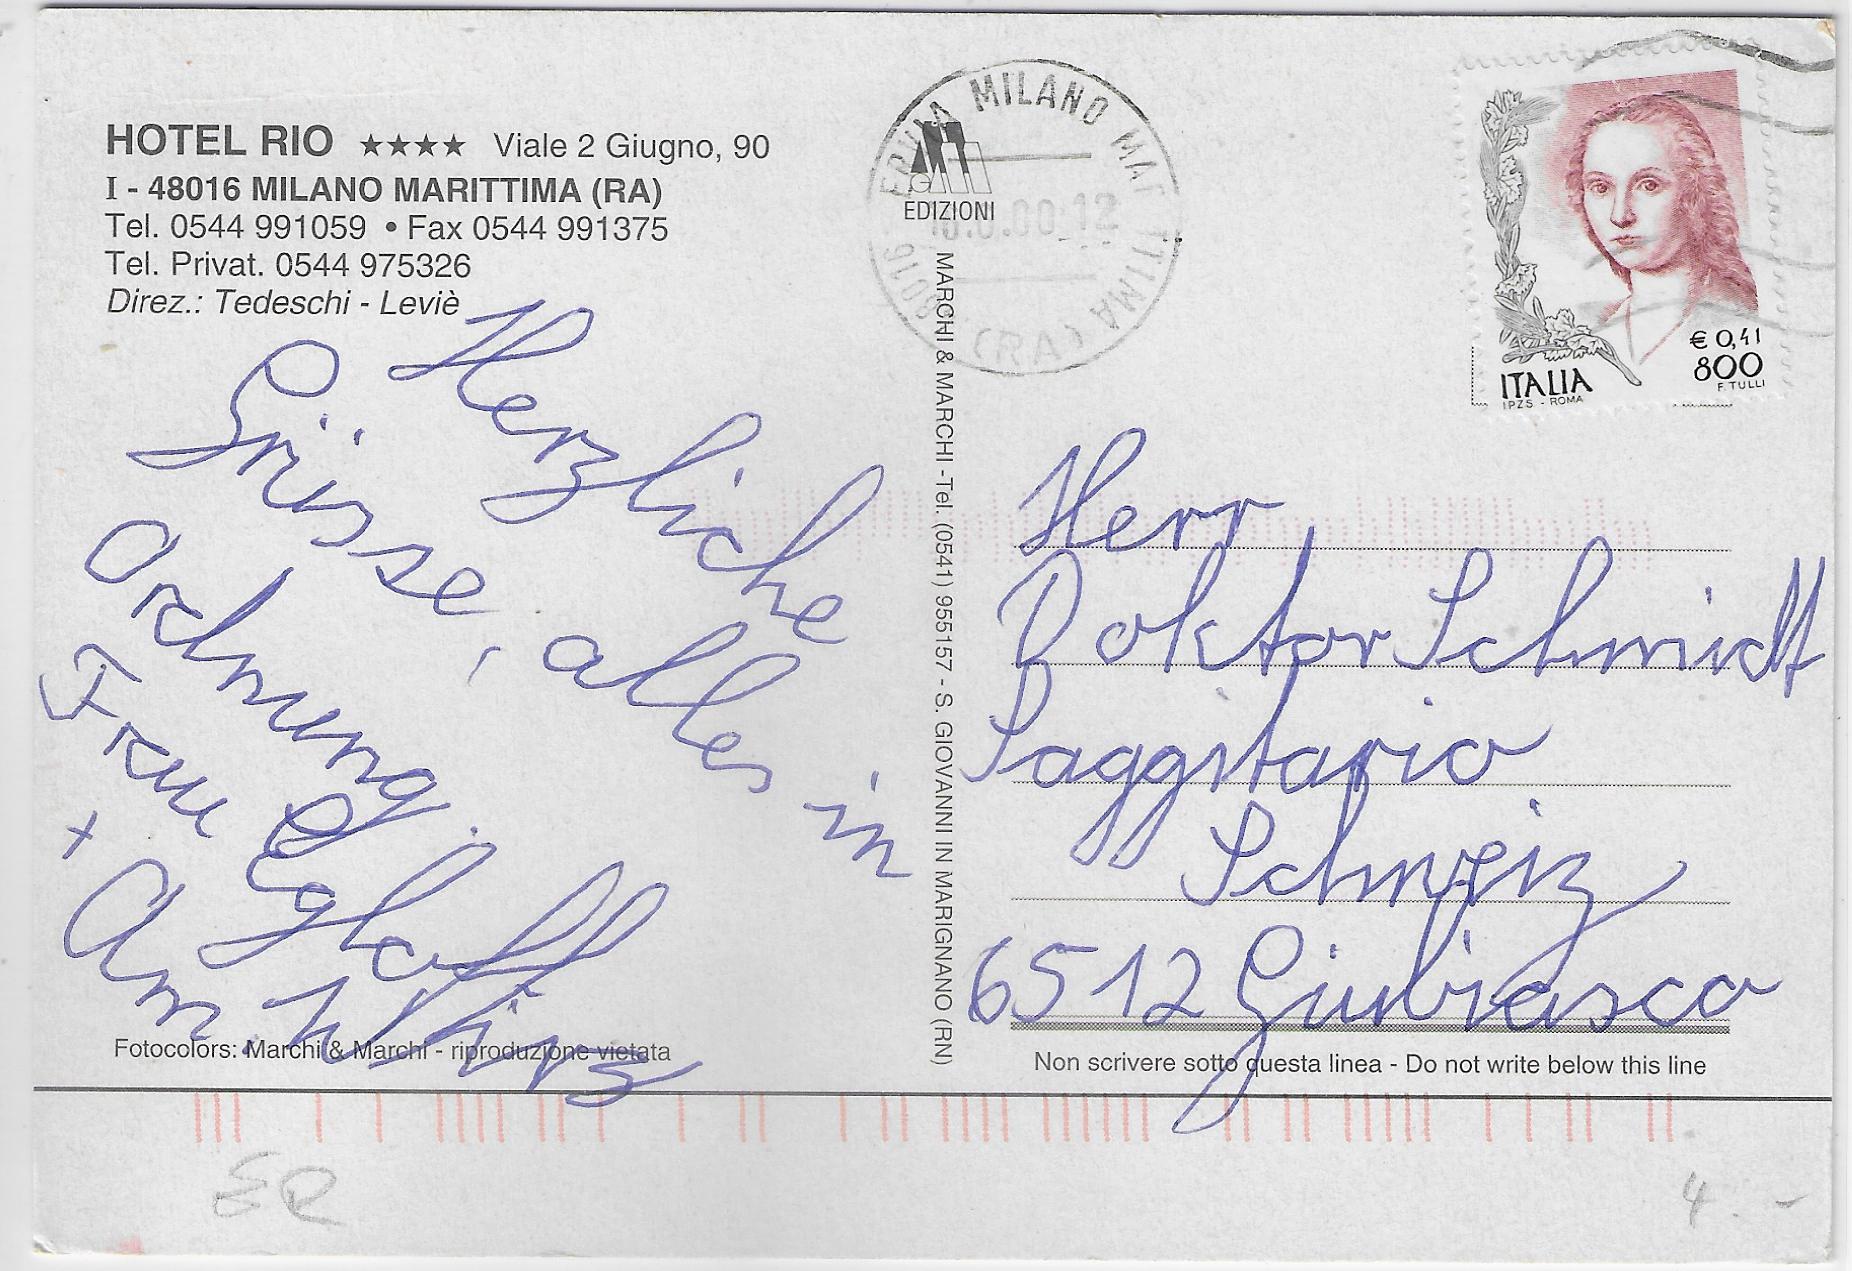 HOTEL RIO ★★★★ Viale 2 Giugno, 90
I - 48016 MILANO MARITTIMA (RA)
Tel. 0544 991059 • Fax 0544 991375
Tel. Privat. 0544 975326
Direz.: Tedeschi - Leviè
Herzliche
Grüsse, alles in
Ordnung
Frau Egloff
+ Am
Fotocolors: Marchi & Marchi - riproduzione vietata
EDIZIONI
MARCHI & MARCHI - Tel. (0541) 955157 - S. GIOVANNI IN MARIGNANO (RN)
MILANO MA TTIMA
(RA)
00.12
€ 0,41
800
ITALIA
F. TULLI
I.P.Z.S. - ROMA
Herr
Doktor Schmidt
Saggitario
Schweiz
6512 Giubiasco
Non scrivere sotto questa linea - Do not write below this line
4.-